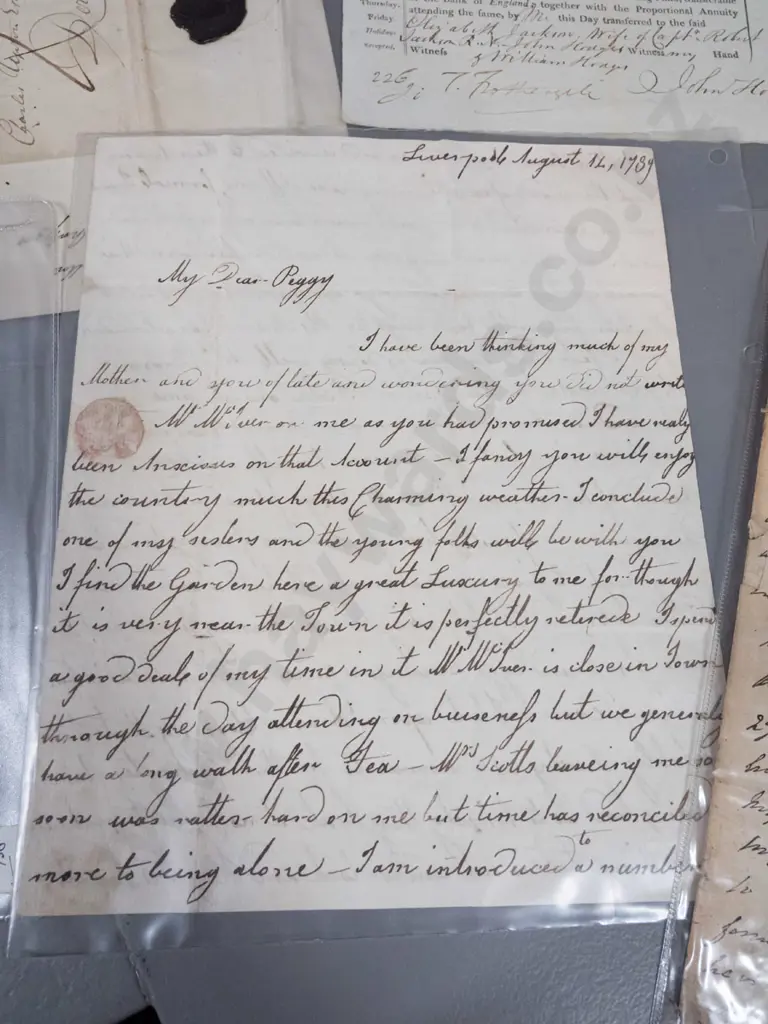 Thursday.
Friday
Holidays
excepted.
of England, together with the Proportional Annuity
attending the same, by Me this Day transferred to the said
Elizabeth Jackson, Wife of Captn. Robert
Jackson R.N. John Hoages Witness my Hand
Witness & William Hoages
226
John Ho
Charles
Liverpoole August 14, 1789
My Dear Peggy
I have been thinking much of my
Mother and you of late and wondering you did not write
Mr McIver or me as you had promised I have realy
been Anscious on that Account - I fancy you will enjoy
the country much this Charming weather - I conclude
one of my sisters and the young folks will be with you
I find the Garden here a great Luxury to me for though
it is very near the Town it is perfectly retired I spend
a good deale of my time in it Mr McIver is close in Town
through the day attending on buiseness but we generaly
have a long walk after Tea - Mrs Scotts leaveing me so
soon was rather hard on me but time has reconciled
more to being alone - I am introduced to a number
www.haywards.co.nz